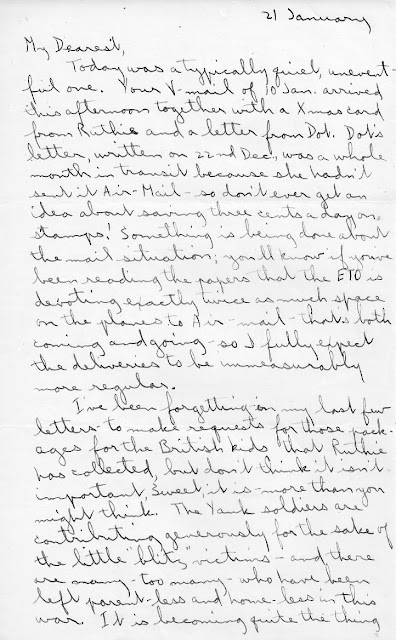 21 January
My Dearest,
Today was a typically quiet, unevent-
ful one. Your V-mail of 10 Jan. arrived
this afternoon together with a Xmas card
from Ruthie and a letter from Dot. Dot's
letter, written on 22nd Dec, was a whole
month in transit because she hadn't
sent it Air-Mail - so don't ever get an
idea about saving three cents a day on
stamps! Something is being done about
the mail situation; you'll know if you've
been reading the papers that the ETO is
devoting exactly twice as much space
on the planes to Air-mail - that's both
coming and going - so I fully expect
the deliveries to be immeasurably
more regular.
I've been forgetting in my last few
letters to make requests for those pack-
ages for the British kids that Ruthie
has collected, but don't think it isn't
important, Sweet, it is - more than you
might think. The Yank soldiers are
contributing generously for the sake of
the little "blitz" victims - and there
are many - too many - who have been
left parent-less and home-less in this
war. It is becoming quite the thing